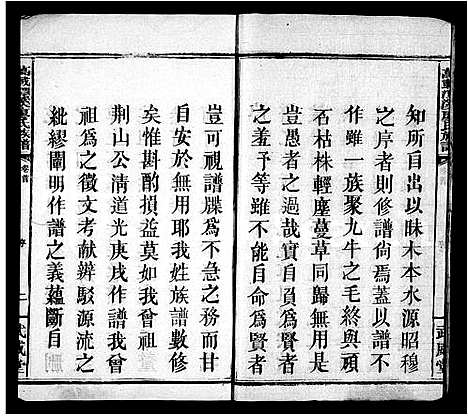 知所自出以昧木本水源昭穆
之序者則修譜尚焉蓋以譜不
作雖一族聚九牛之毛終與頑
石枯株輕塵蔓草同歸無用是
愚者之過哉實自負爲賢者
之羞予等雖不能自命爲賢者
豈可視譜牒為不急之務而甘
自安於無用耶我姓族譜數修
矣惟斟酌損益莫如我曾祖
荆山公清道光庚戌作譜我曾
祖爲之徵文考献辨駁源流之
紕繆闡明作譜之義蘊斷自
卷首
武威堂
武威堂